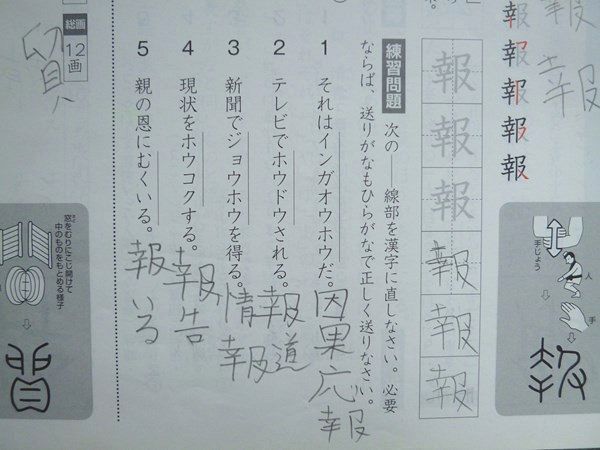 報
報
報
報
報
報
報
手じょう
人
手
報
報
報
報
報
報
練習問題 次の――線部を漢字に直しなさい。必要
ならば、送りがなもひらがなで正しく送りなさい。
1 それはインガオウホウだ。因果応報
2 テレビでホウドウされる。報道
3 新聞でジョウホウを得る。情報
4 現状をホウコクする。報告
5 親の恩にむくいる。報いる
総画
12画
貿
窓をむりにこじ開けて
中のものをもとめる様子